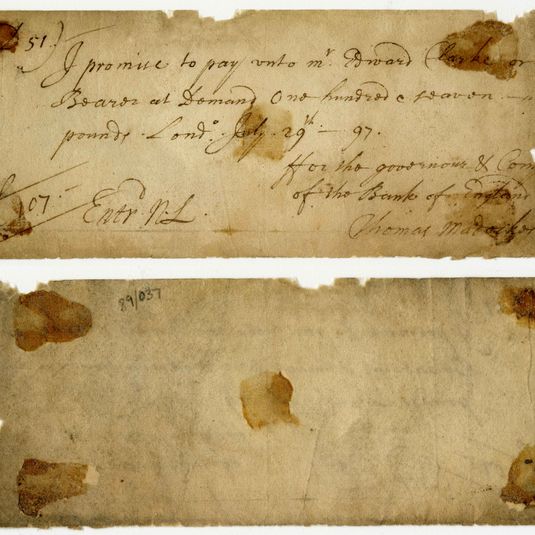 51.
I promise to pay unto mr. Edward Clarke or
Bearer at Demand One hundred & seaven
pounds. Londo. July. 29th — 97.
ffor the governour & Com
of the Bank of England
107.
Entrd. N:L.
Thomas Madockes
89/037